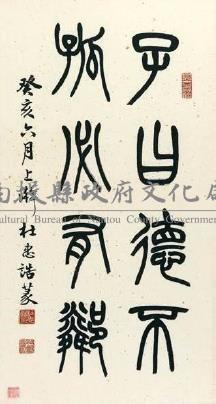 子曰德不
孤必有鄰
癸亥六月上澣杜忠誥篆
南投縣政府文化局
Cultural Bureau of Nantou County Government